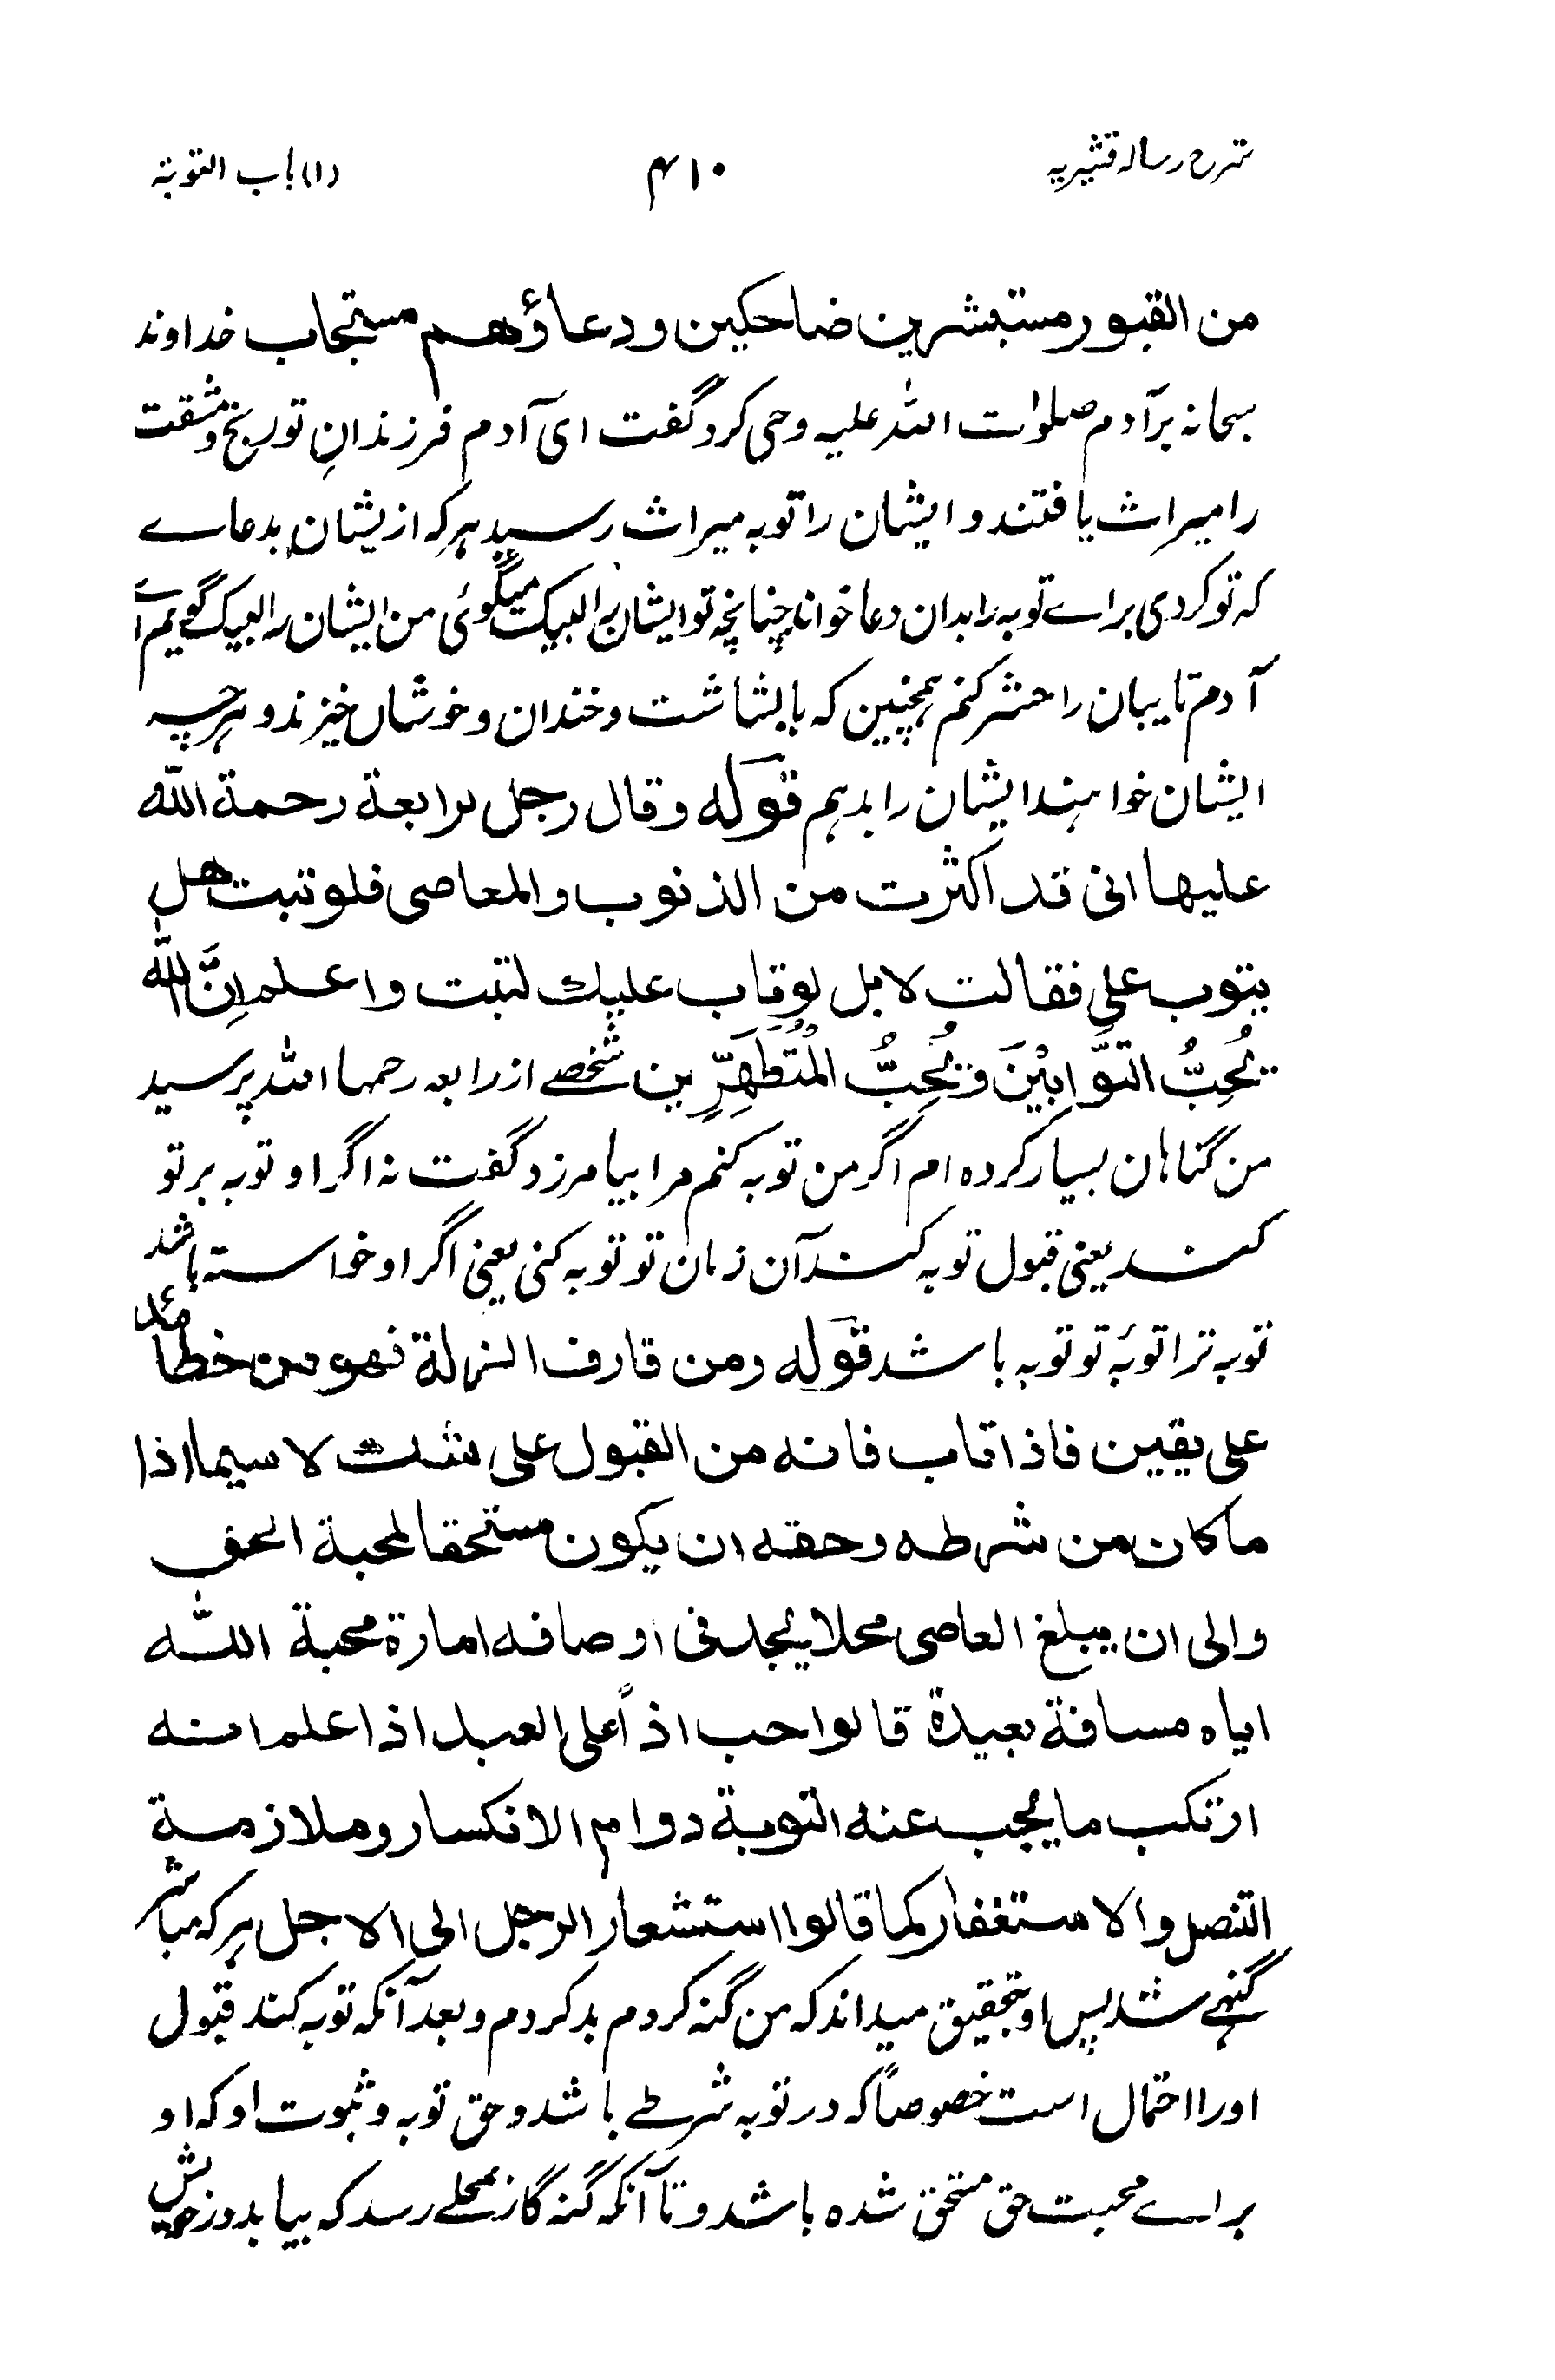 شرح رساله قشیریه ۴۱۰ (۱) باب التوبة
من القبور مستبشرین ضاحکین ودعاؤهم مستجاب خداوند
سبحانه برآدم صلوات الله علیه وحی کرد گفت ای آدم فرزندانِ تو رنج و مشقت
را میراث یافتند و ایشان را توبه میراث رسید هر که از یشان بدعاے
که تو کردی براے توبه را بدان دعا خواند چنانچه تو ایشان را لبیک میگوئی من ایشان را لبیک گویم اے
آدم تایبان را حشر کنم همچنین که با بشاشت و خندان و خوشاں خیزند و هرچه
ایشان خواهند ایشان را بدهم قوله وقال رجل لرابعة رحمة الله
علیها انی قد اکثرت من الذنوب والمعاصی فلو تبت هل
یتوب علی فقالت لا بل لو تاب علیك لتبت واعلم اِنَّ اللّٰه
یُحِبُّ التَّوَّابِیْنَ وَیُحِبُّ الْمُتَطَهِّرِین شخصے از رابعه رحمها الله پرسید
من گناهان بسیار کرده ام اگر من توبه کنم مرا بیامرزد گفت نه اگر او توبه بر تو
کند یعنی قبول توبه کند آن زمان تو توبه کنی یعنی اگر او خواسته باشد
توبه ترا توبۂ تو توبه باشد قوله ومن قارف الزلة فهو من خطائه
علی یقین فاذا تاب فانه من القبول علی شك لا سیما اذا
ما کان من شرطه وحقه ان یکون مستحقا لمحبة الحق
والی ان یبلغ العاصی محلا یجد فی اوصافه امارة محبة اللّٰه
ایاه مسافة بعیدة قالوا حب اذاً علی العبد اذا علم انه
ارتکب ما یجب عنه التوبة دوام الانکسار وملازمة
التنصل والاستغفار کما قالوا استشعار الرجل الی الاجل هر که مباشر
گنهے شد پس او بتحقیق میداند که من گنه کردم بد کردم و بعد آنکه توبه کند قبول
اورا احتمال است خصوصاً که در توبه شرطے باشد و حق توبه و ثبوت او که او
براے محبت حق مستحق شده باشد و تا آنکه گنه گار بمحلے رسد که بیابد در خویش